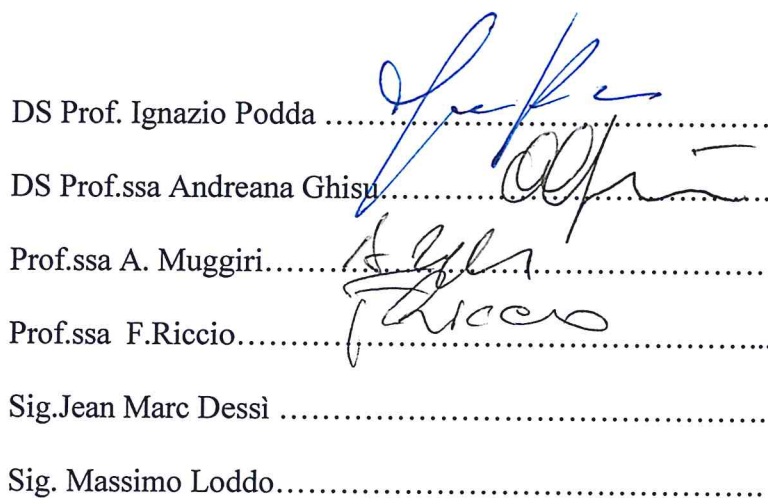 DS Prof. Ignazio Podda ................................................
DS Prof.ssa Andreana Ghisu................................................
Prof.ssa A. Muggiri................................................
Prof.ssa  F.Riccio................................................ FRiccio
Sig.Jean Marc Dessì ................................................
Sig. Massimo Loddo................................................